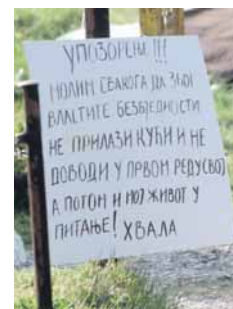 УПОЗОРЕЊЕ !!!
МОЛИМ СВАКОГА ДА ЗБОГ
ВЛАСТИТЕ БЕЗБЈЕДНОСТИ
НЕ ПРИЛАЗИ КУЋИ И НЕ
ДОВОДИ У ПРВОМ РЕДУ СВОЈ
А ПОТОМ И МОЈ ЖИВОТ У
ПИТАЊЕ! ХВАЛА